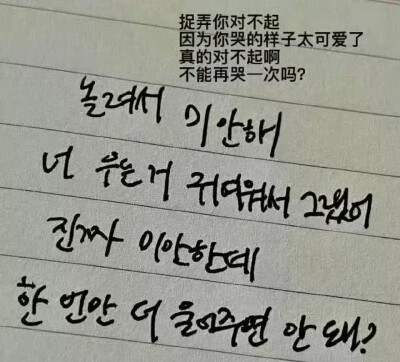 捉弄你对不起
因为你哭的样子太可爱了
真的对不起啊
不能再哭一次吗?
놀려서 미안해
너 우는거 귀여워서 그랬어
진짜 미안한데
한 번만 더 울어주면 안 돼?